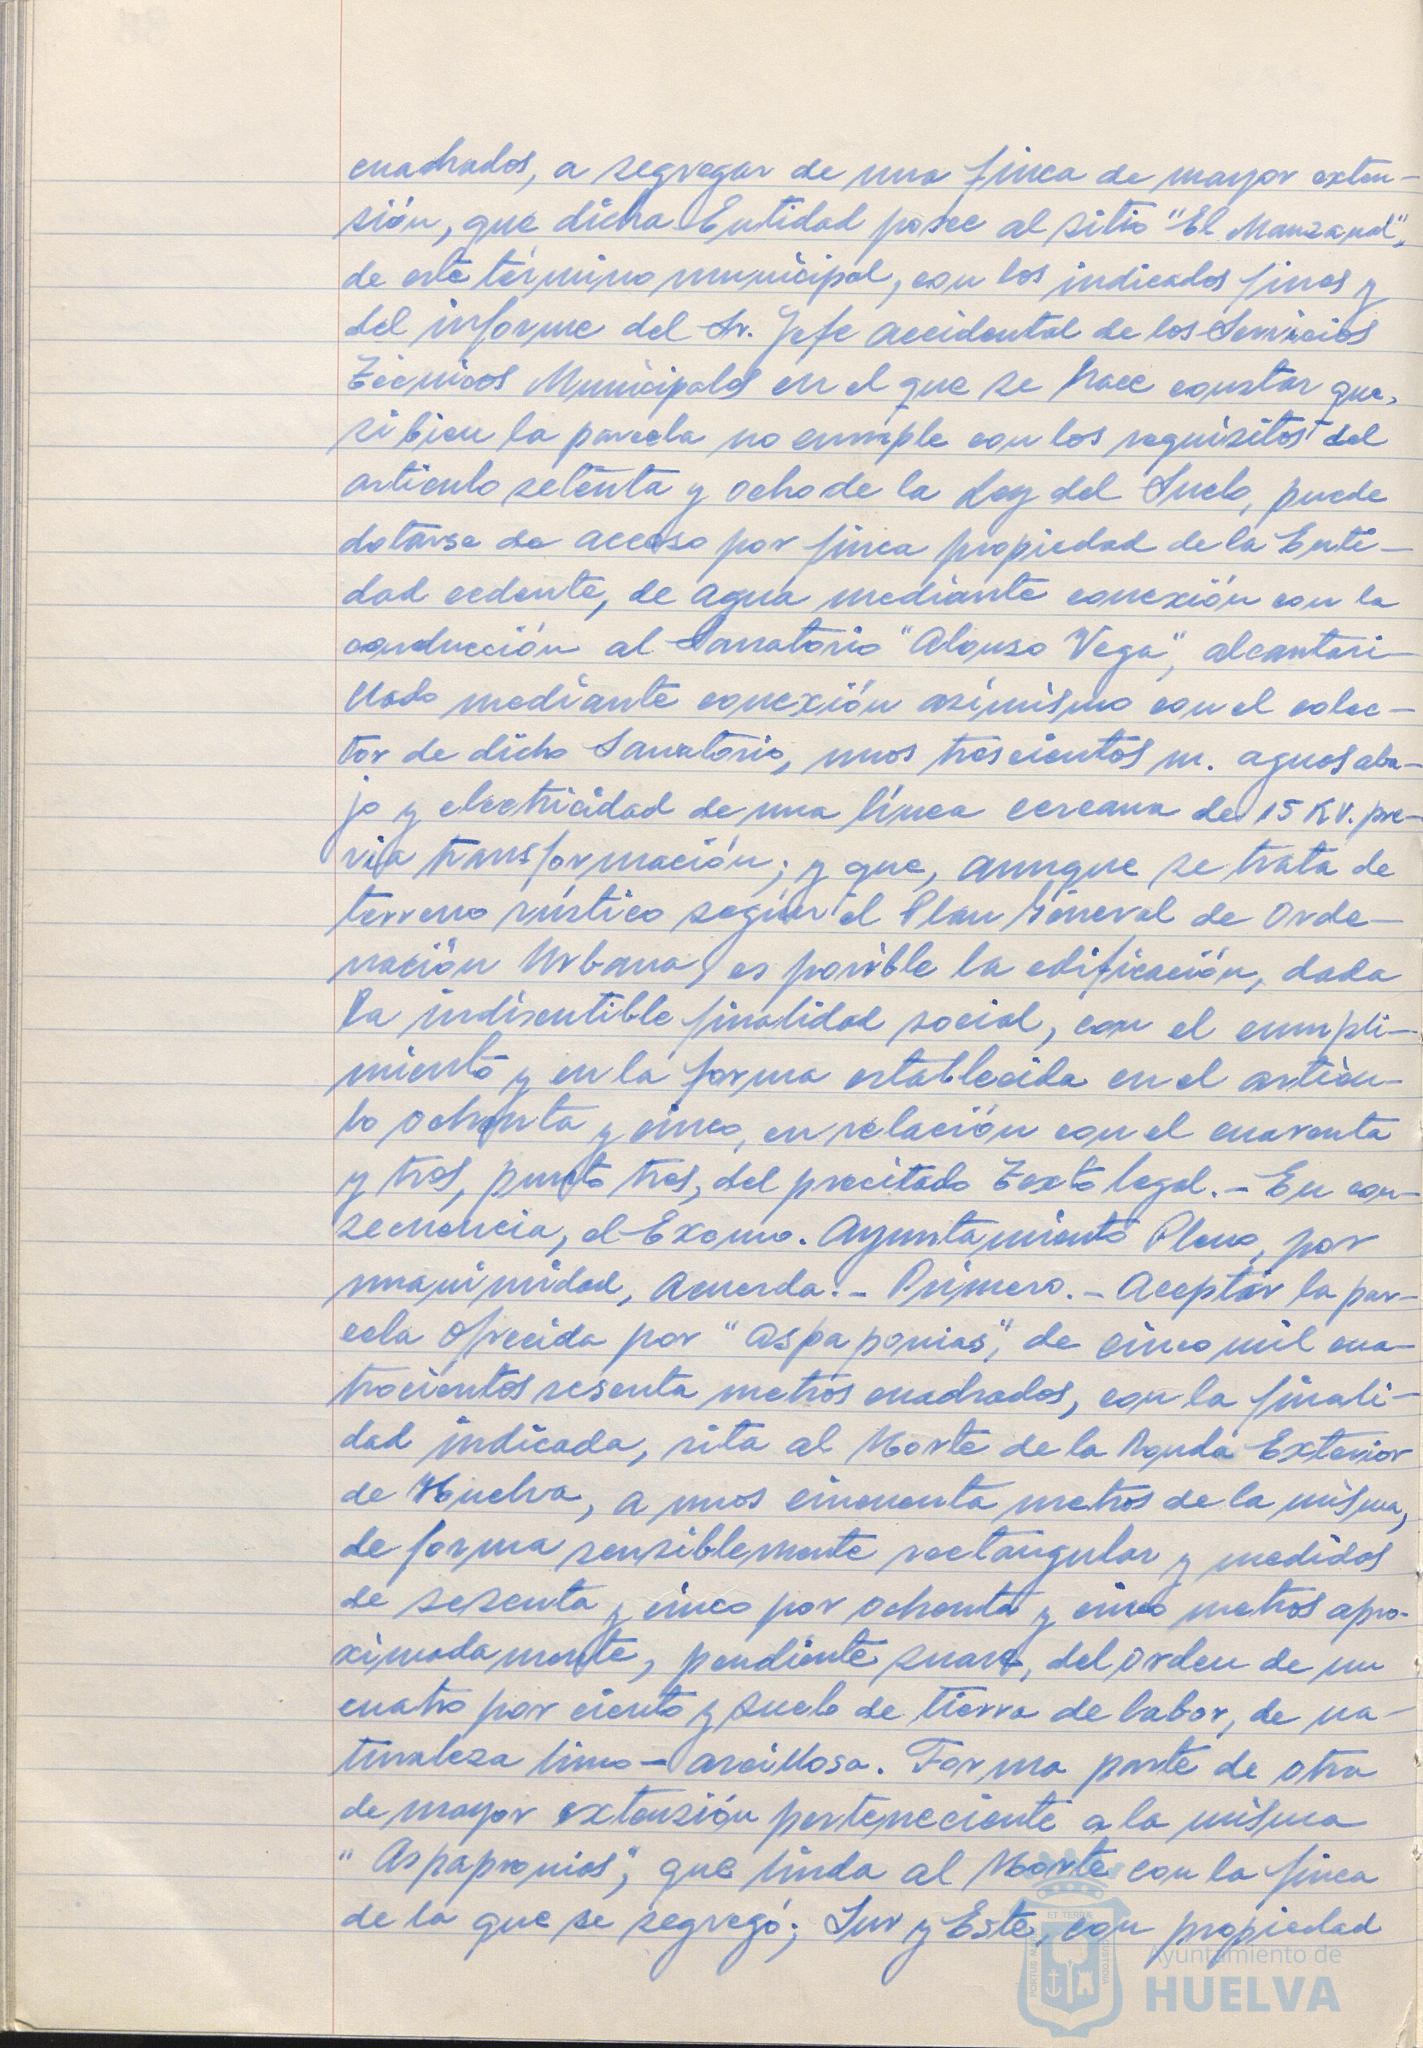 cuadrados, a segregar de una finca de mayor exten-
sión, que dicha Entidad posee al sitio "El Manzanal",
de este término municipal, con los indicados fines y
del informe del Sr. Jefe accidental de los Servicios
Técnicos Municipales en el que se hace constar que,
si bien la parcela no cumple con los requisitos del
artículo setenta y ocho de la Ley del Suelo, puede
dotarse de acceso por finca propiedad de la Enti-
dad cedente, de agua mediante conexión con la
conducción al Sanatorio "Alonso Vega", alcantari-
llado mediante conexión asimismo con el colec-
tor de dicho Sanatorio, unos trescientos m. aguas aba-
jo y electricidad de una línea cercana de 15 KV. pre-
via transformación; y que, aunque se trata de
terreno rústico según el Plan General de Orde-
nación Urbana, es posible la edificación, dada
la indiscutible finalidad social, con el cumpli-
miento y en la forma establecida en el artícu-
lo ochenta y cinco, en relación con el cuarenta
y tres, punto tres, del precitado Texto legal.- En con-
secuencia, el Excmo. Ayuntamiento Pleno, por
unanimidad, acuerda:- Primero.- Aceptar la par-
cela ofrecida por "Aspapronias", de cinco mil cua-
trocientos sesenta metros cuadrados, con la finali-
dad indicada, sita al Norte de la Ronda Exterior
de Huelva, a unos cincuenta metros de la misma,
de forma sensiblemente rectangular y medidas
de sesenta y cinco por ochenta y cinco metros apro-
ximadamente, pendiente suave, del orden de un
cuatro por ciento y suelo de tierra de labor, de na-
turaleza limo-arcillosa. Forma parte de otra
de mayor extensión perteneciente a la misma
"Aspapronias", que linda al Norte con la finca
de la que se segregó; Sur y Este, con propiedad
Ayuntamiento de
HUELVA